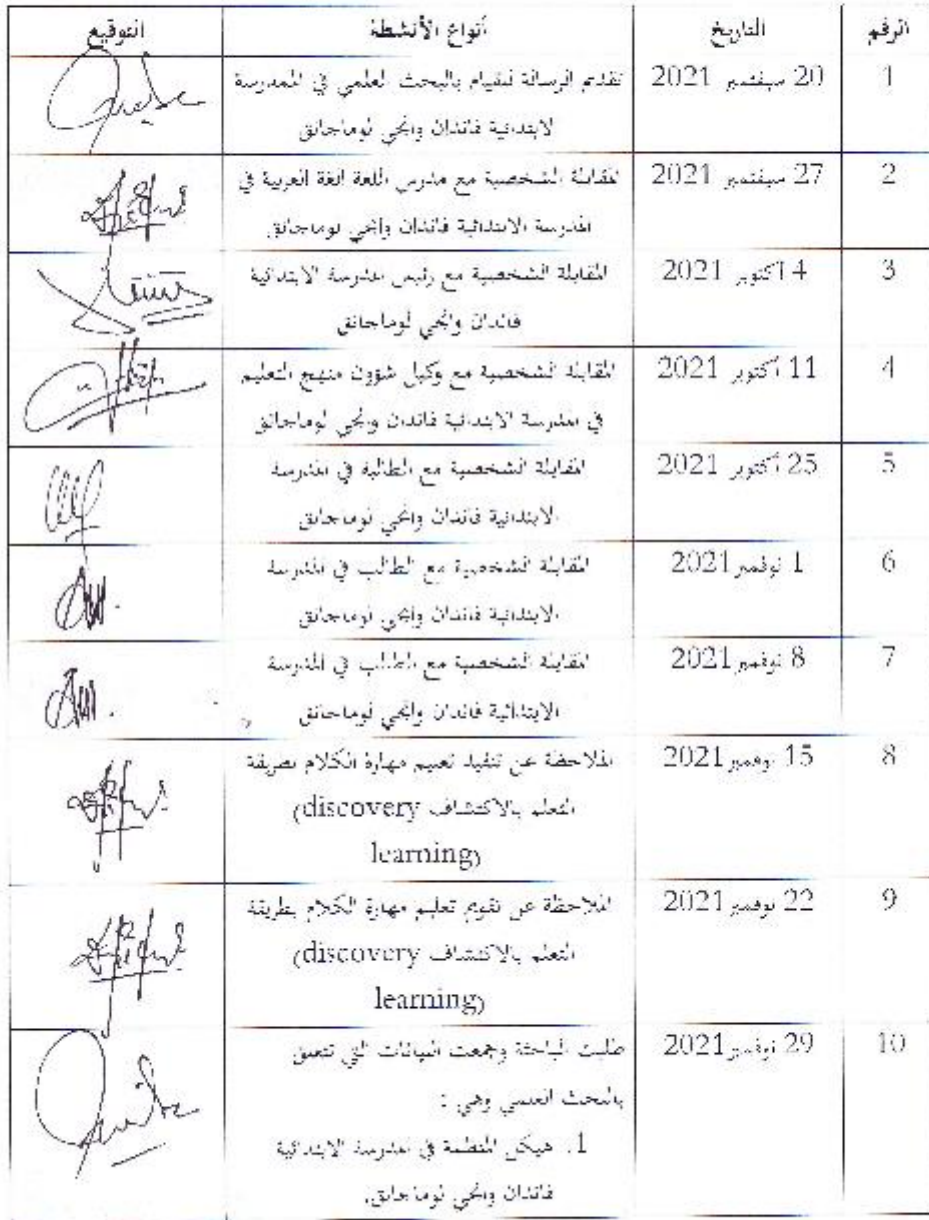 الرقم التاريخ أنواع الأنشطة التوقيع
1 20 سبفتمبر 2021 تقديم الرسالة للقيام بالبحث العلمي في المدرسة
الابتدائية فاندان وانجي لوماجانق
2 27 سبفتمبر 2021 المقابلة الشخصية مع مدرس اللغة الغة العربية في
المدرسة الابتدائية فاندان وانجي لوماجانق
3 4 أكتوبر 2021 المقابلة الشخصية مع رئيس المدرسة الابتدائية
فاندان وانجي لوماجانق
4 11 أكتوبر 2021 المقابلة الشخصية مع وكيل شؤون منهج التعليم
في المدرسة الابتدائية فاندان وانجي لوماجانق
5 25 أكتوبر 2021 المقابلة الشخصية مع الطالبة في المدرسة
الابتدائية فاندان وانجي لوماجانق
6 1 نوفمبر 2021 المقابلة الشخصية مع الطالب في المدرسة
الابتدائية فاندان وانجي لوماجانق
7 8 نوفمبر 2021 المقابلة الشخصية مع الطالب في المدرسة
الابتدائية فاندان وانجي لوماجانق
8 15 نوفمبر 2021 الملاحظة عن تنفيذ تعليم مهارة الكلام بطريقة
التعلم بالاكتشاف (discovery
learning)
9 22 نوفمبر 2021 الملاحظة عن تقويم تعليم مهارة الكلام بطريقة
التعلم بالاكتشاف (discovery
learning)
10 29 نوفمبر 2021 طلبت الباحثة وجمعت البيانات التي تتعلق
بالبحث العلمي وهي :
1. هيكل المنظمة في المدرسة الابتدائية
فاندان وانجي لوماجانق.